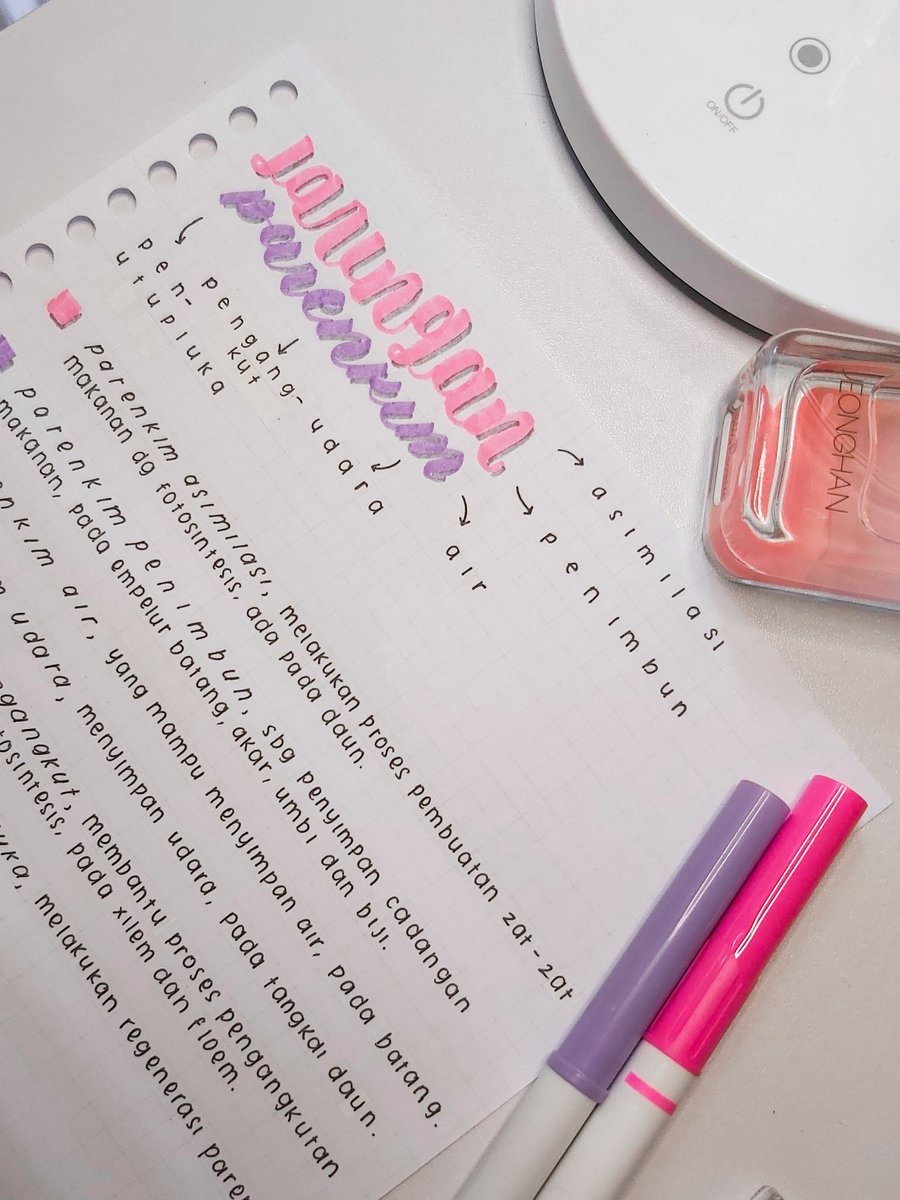 Jaringan
parenkim
asimilasi
penimbun
air
pengang-
kut
udara
pen-
utupluka
parenkim asimilasi, melakukan proses pembuatan zat-zat
makanan dg fotosintesis, ada pada daun.
parenkim penimbun, sbg penyimpan cadangan
makanan, pada empelur batang, akar, umbi dan biji.
air, yang mampu menyimpan air, pada batang.
udara, menyimpan udara, pada tangkai daun.
membantu proses pengangkutan
pada xilem dan floem.
melakukan regenerasi
ON/OFF
JEONGHAN